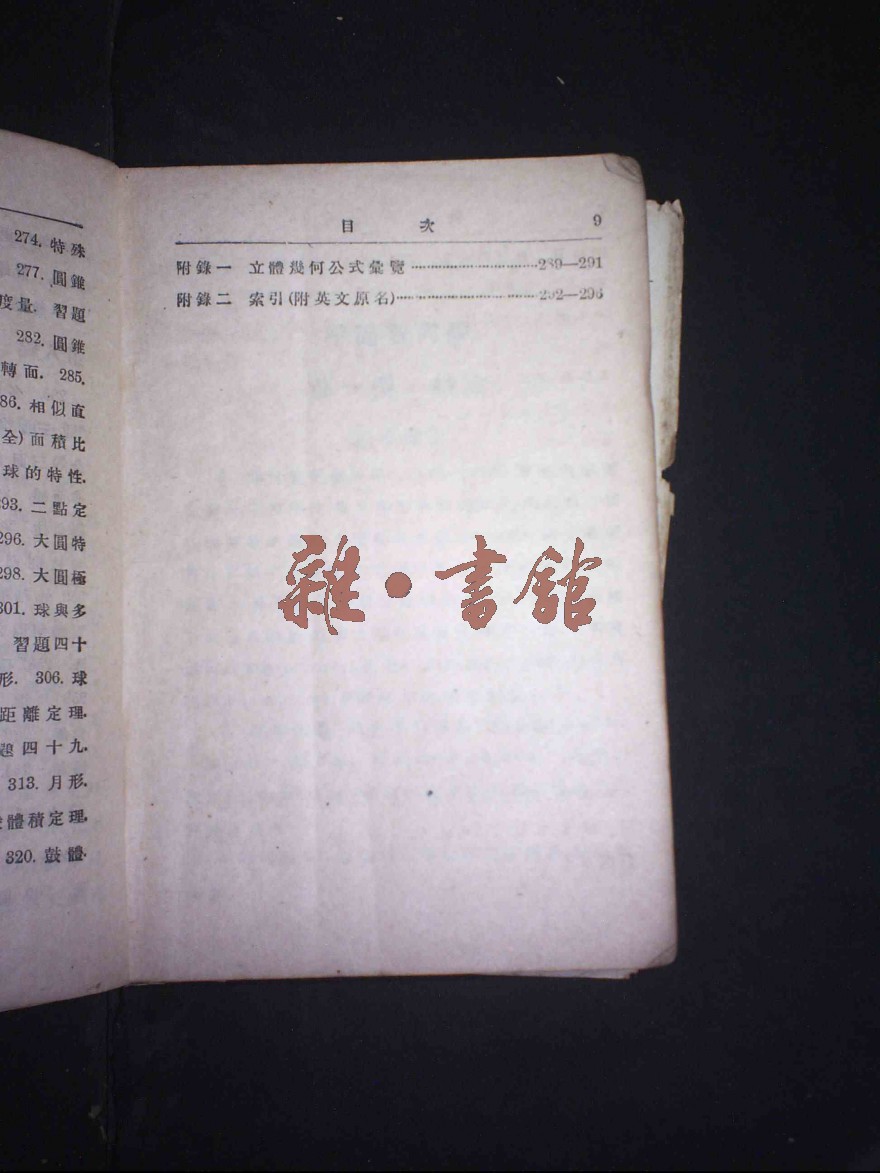 274. 特殊
277. 圓錐
度量. 習題
282. 圓錐
轉面. 285.
86. 相似直
全)面積比
球的特性.
93. 二點定
296. 大圓特
298. 大圓極
301. 球與多
習題四十
形. 306. 球
距離定理.
題四十九.
313. 月形.
體積定理.
320. 鼓體.
目 次 9
附錄一 立體幾何公式彙覽 289—291
附錄二 索引(附英文原名) 292—296
雜·書館